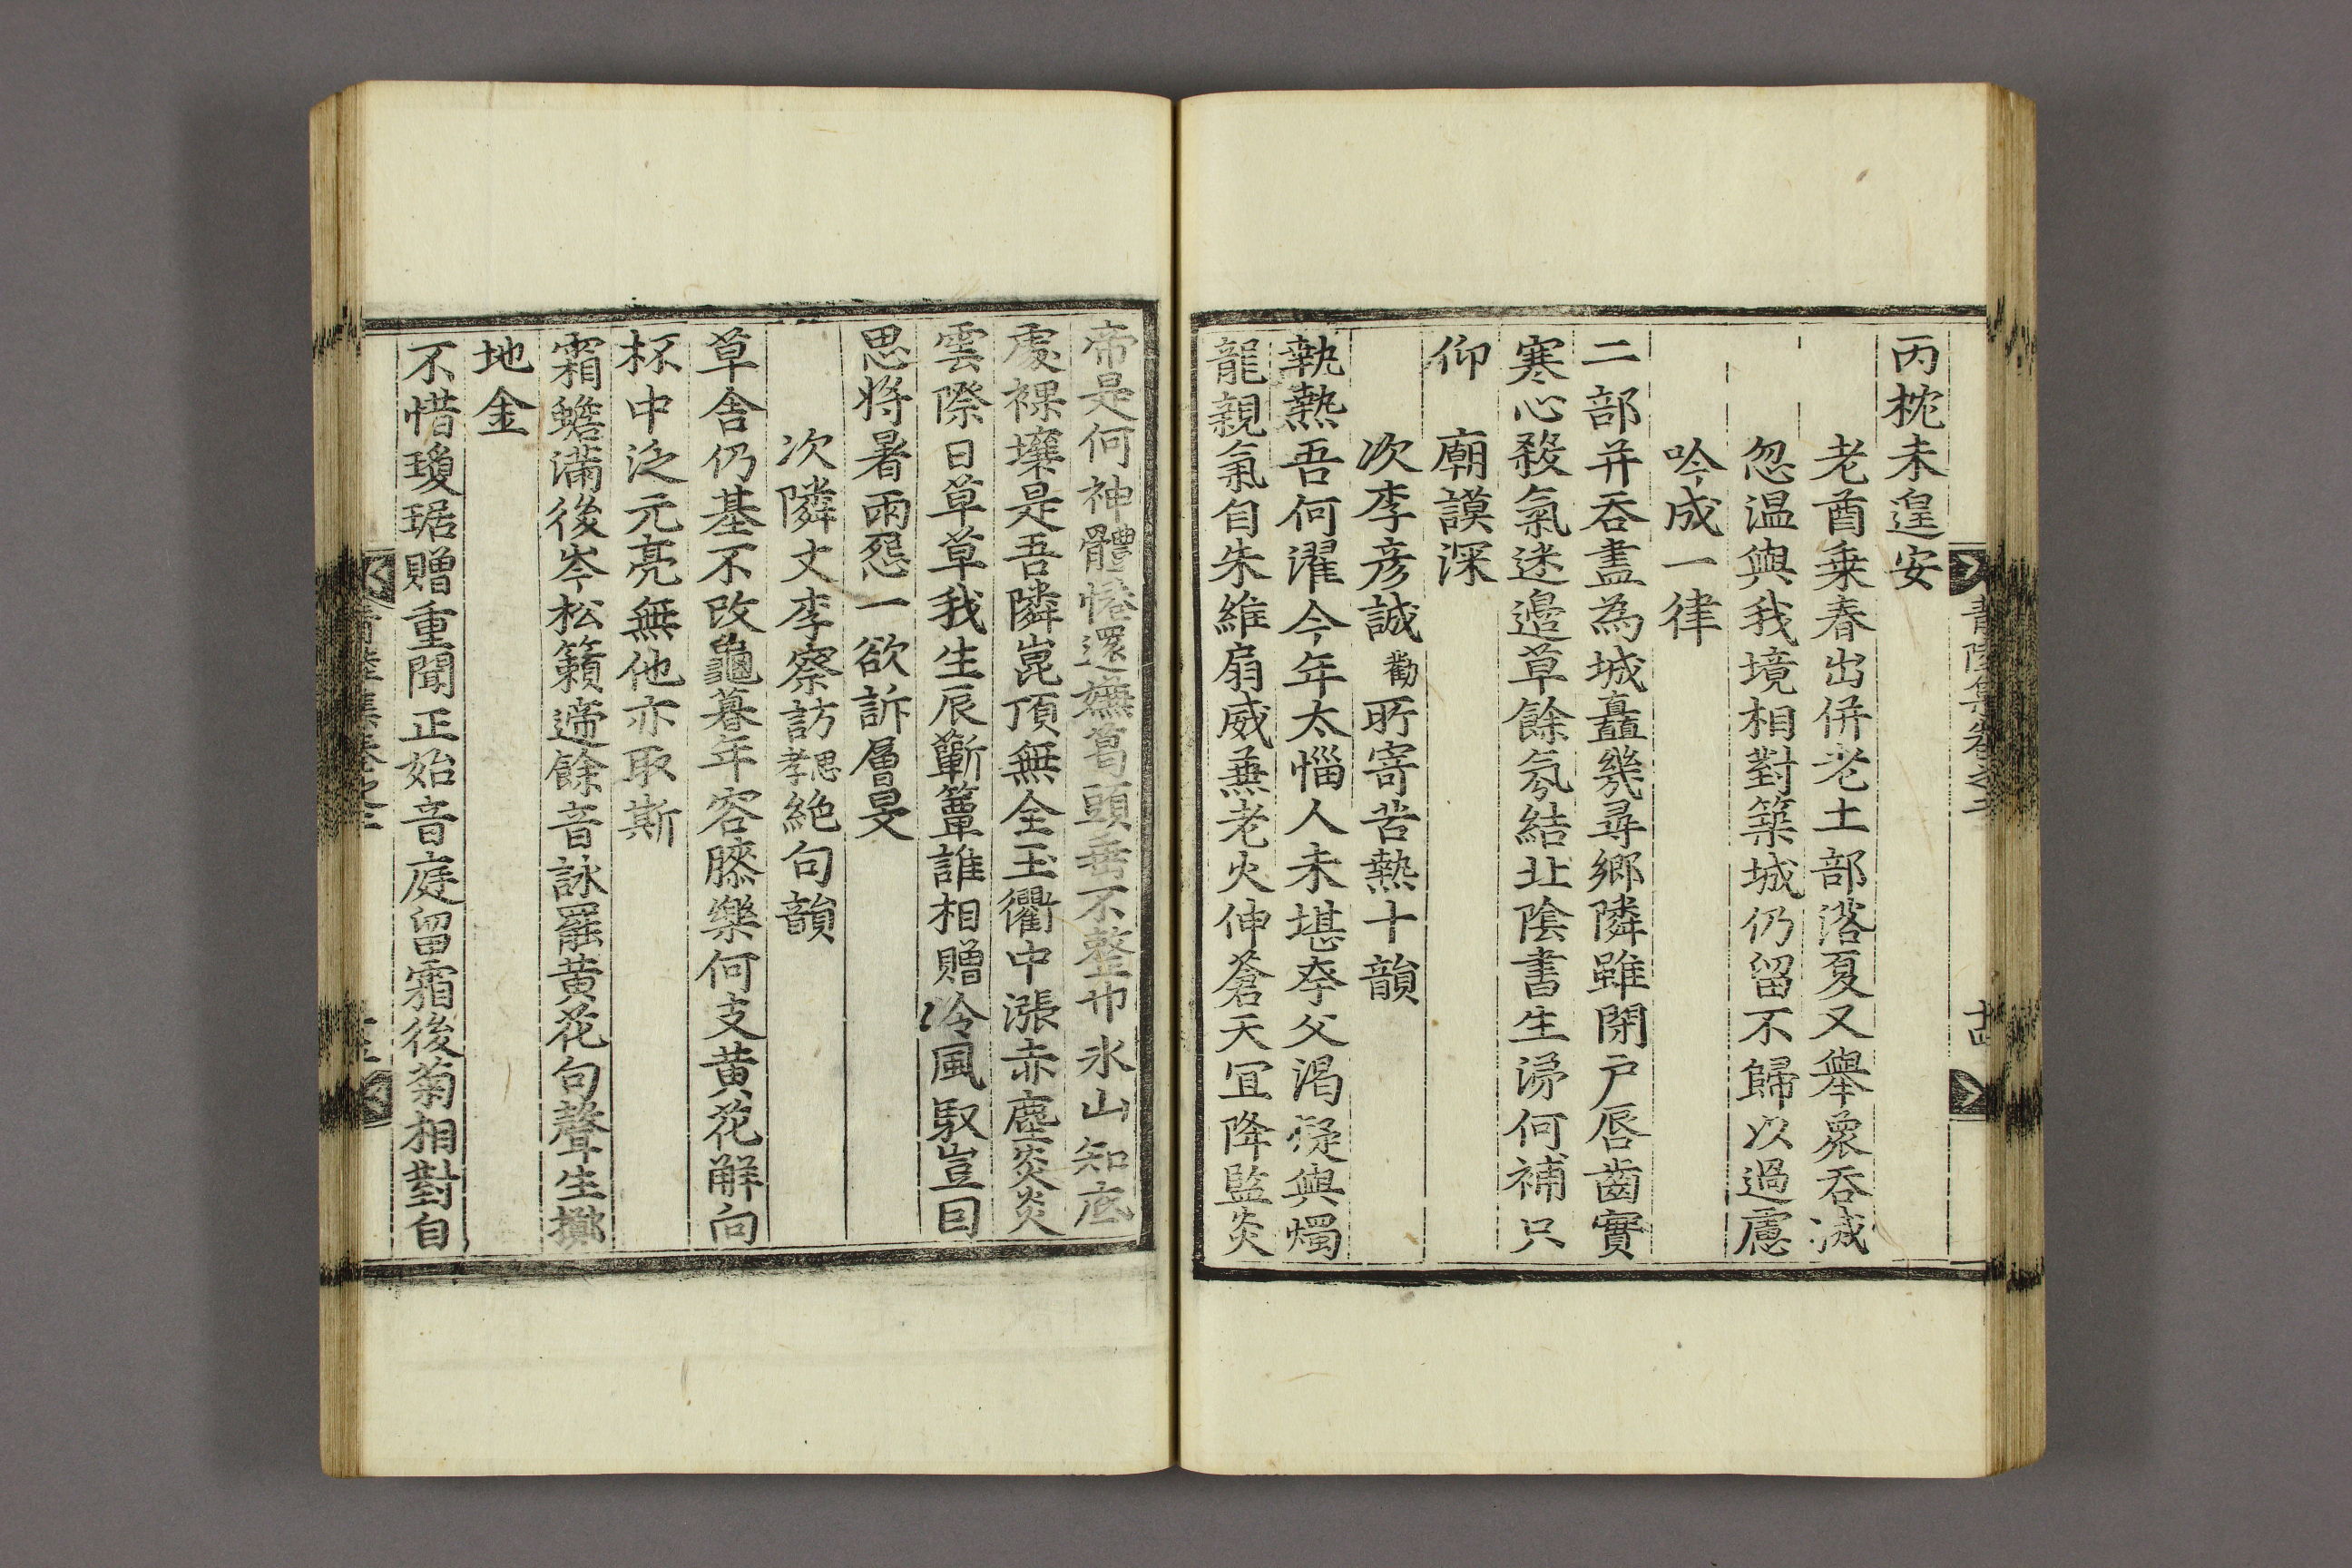 丙枕未遑安
老酋乗春出併老土部落夏又舉衆呑滅
忽温與我境相對築城仍留不歸以過慮
吟成一律
二部并呑盡為城矗幾尋鄉隣雖閉戶唇齒實
寒心殺氣迷邊草餘氛結北陰書生涕何補只
仰　廟謨深
次李彦誠勸所寄苦熱十韻
執熱吾何濯今年太惱人未堪夸父渴疑與燭
龍親氣自朱維扇威兼老火伸蒼天冝降監炎
帝是何神體惓還嫌葛頭垂不整巾氷山知底
處裸壤是吾隣崑頂無全玉衢中漲赤塵炎炎
雲際日草草我生辰蘄簟誰相贈冷風馭豈因
思將暑雨怨一欲訴層旻
次隣丈李察訪孝思絶句韻
草舍仍基不改龜暮年容膝樂何支黄花解向
杯中泛元亮無他亦取斯
霜蟾滿後岑松籟遞餘音詠罷黄花句聲生擲
地金
不惜瓊琚贈重聞正始音庭留霜後菊相對自